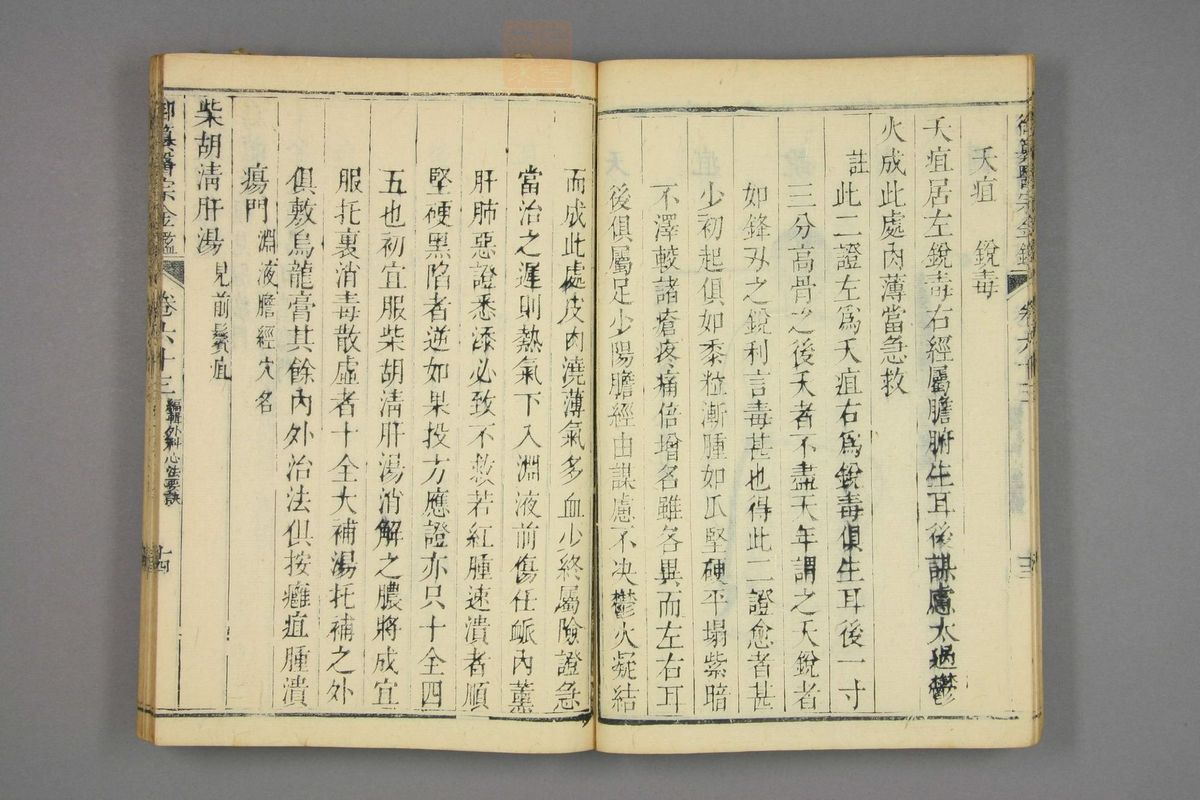 御纂醫宗金鑑 卷六十三
夭疽 銳毒
夭疽居左銳毒右經屬膽腑生耳後謀慮太過鬱
火成此處肉薄當急救
註此二證左爲夭疽右爲銳毒俱生耳後一寸
三分高骨之後夭者不盡天年謂之夭銳者
如鋒刃之銳利言毒甚也得此二證愈者甚
少初起俱如黍粒漸腫如瓜堅硬平塌紫暗
不澤較諸瘡疼痛倍增名雖各異而左右耳
後俱屬足少陽膽經由謀慮不决鬱火凝結
而成此處皮肉澆薄氣多血少終屬險證急
當治之遲則熱氣下入淵液前傷任䘑內薰
肝肺惡證悉添必致不救若紅腫速潰者順
堅硬黑陷者逆如果投方應證亦只十全四
五也初宜服柴胡清肝湯消解之膿將成宜
服托裏消毒散虛者十全大補湯托補之外
俱敷烏龍膏其餘內外治法俱按癰疽腫潰
瘍門 淵液膽經穴名
柴胡清肝湯 見前鬢疽
御纂醫宗金鑑 卷六十三 編輯外科心法要訣 十四